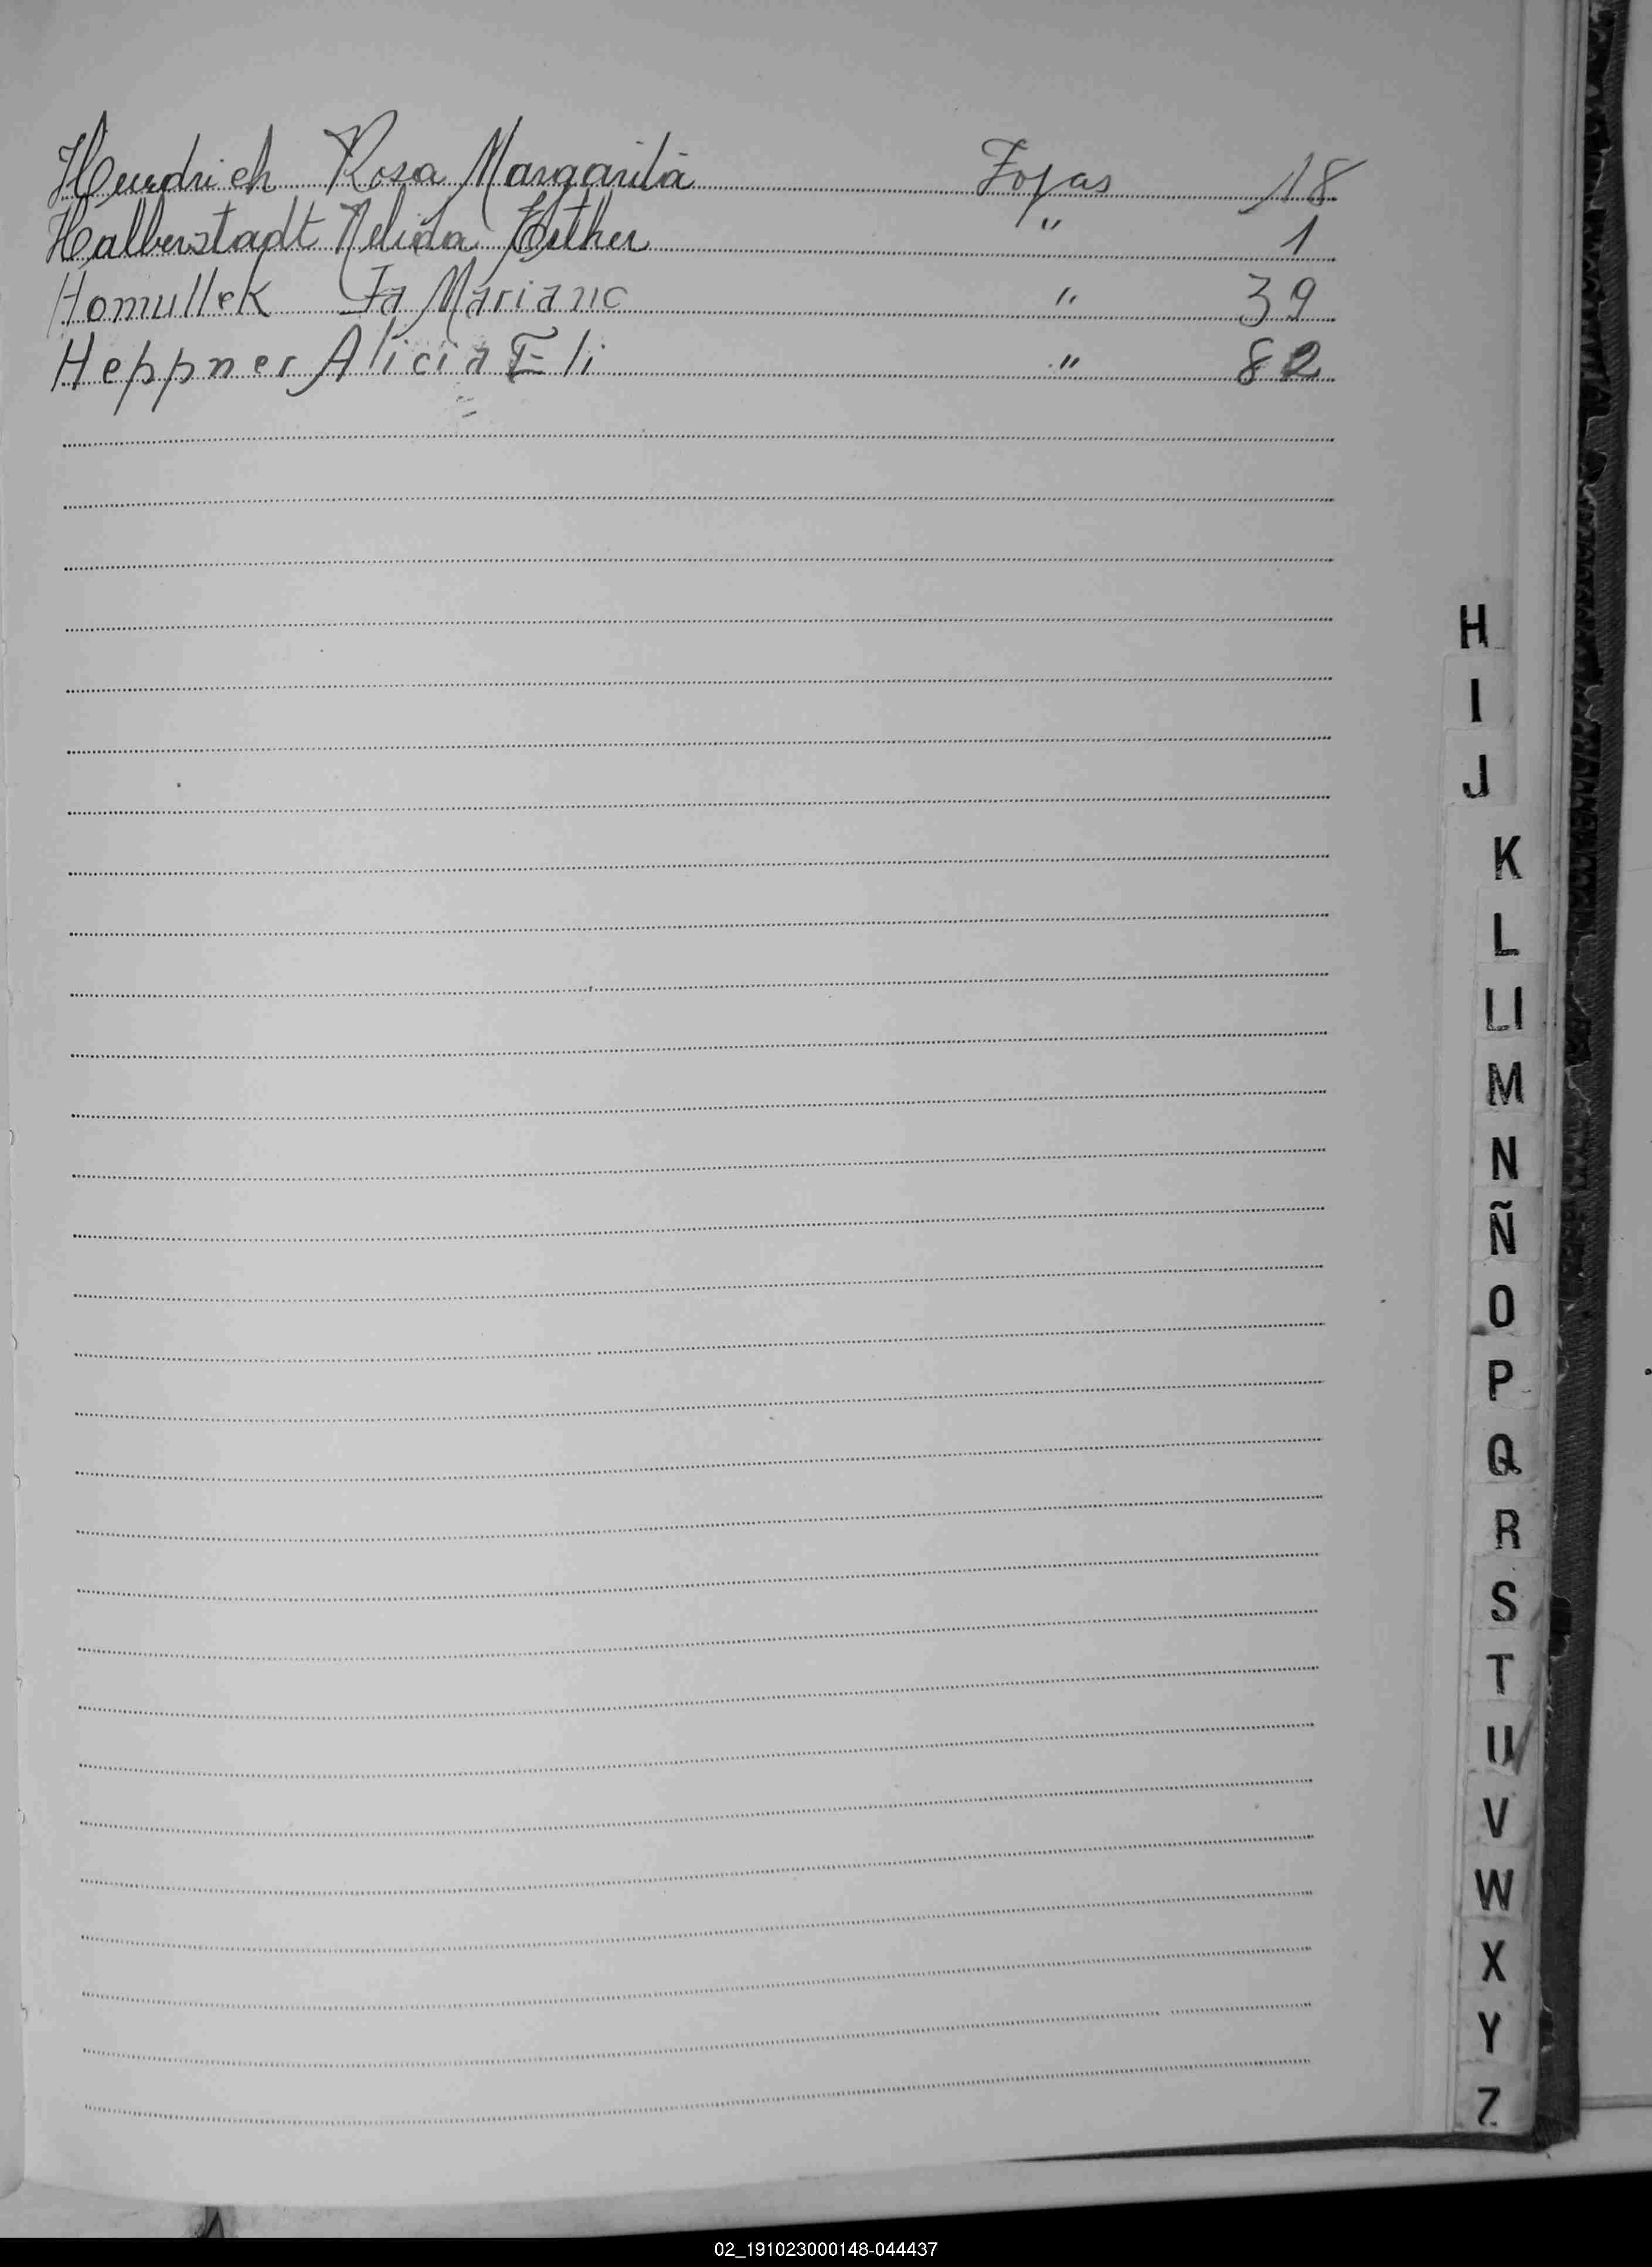 Hendrich Rosa Margarita Fojas 18
Halberstadt Nelida Esther " 1
Homullek Fa Mariano " 39
Heppner Alicia Eli " 82
H
I
J
K
L
Ll
M
N
Ñ
O
P
Q
R
S
T
U
V
W
X
Y
Z
02_191023000148-044437